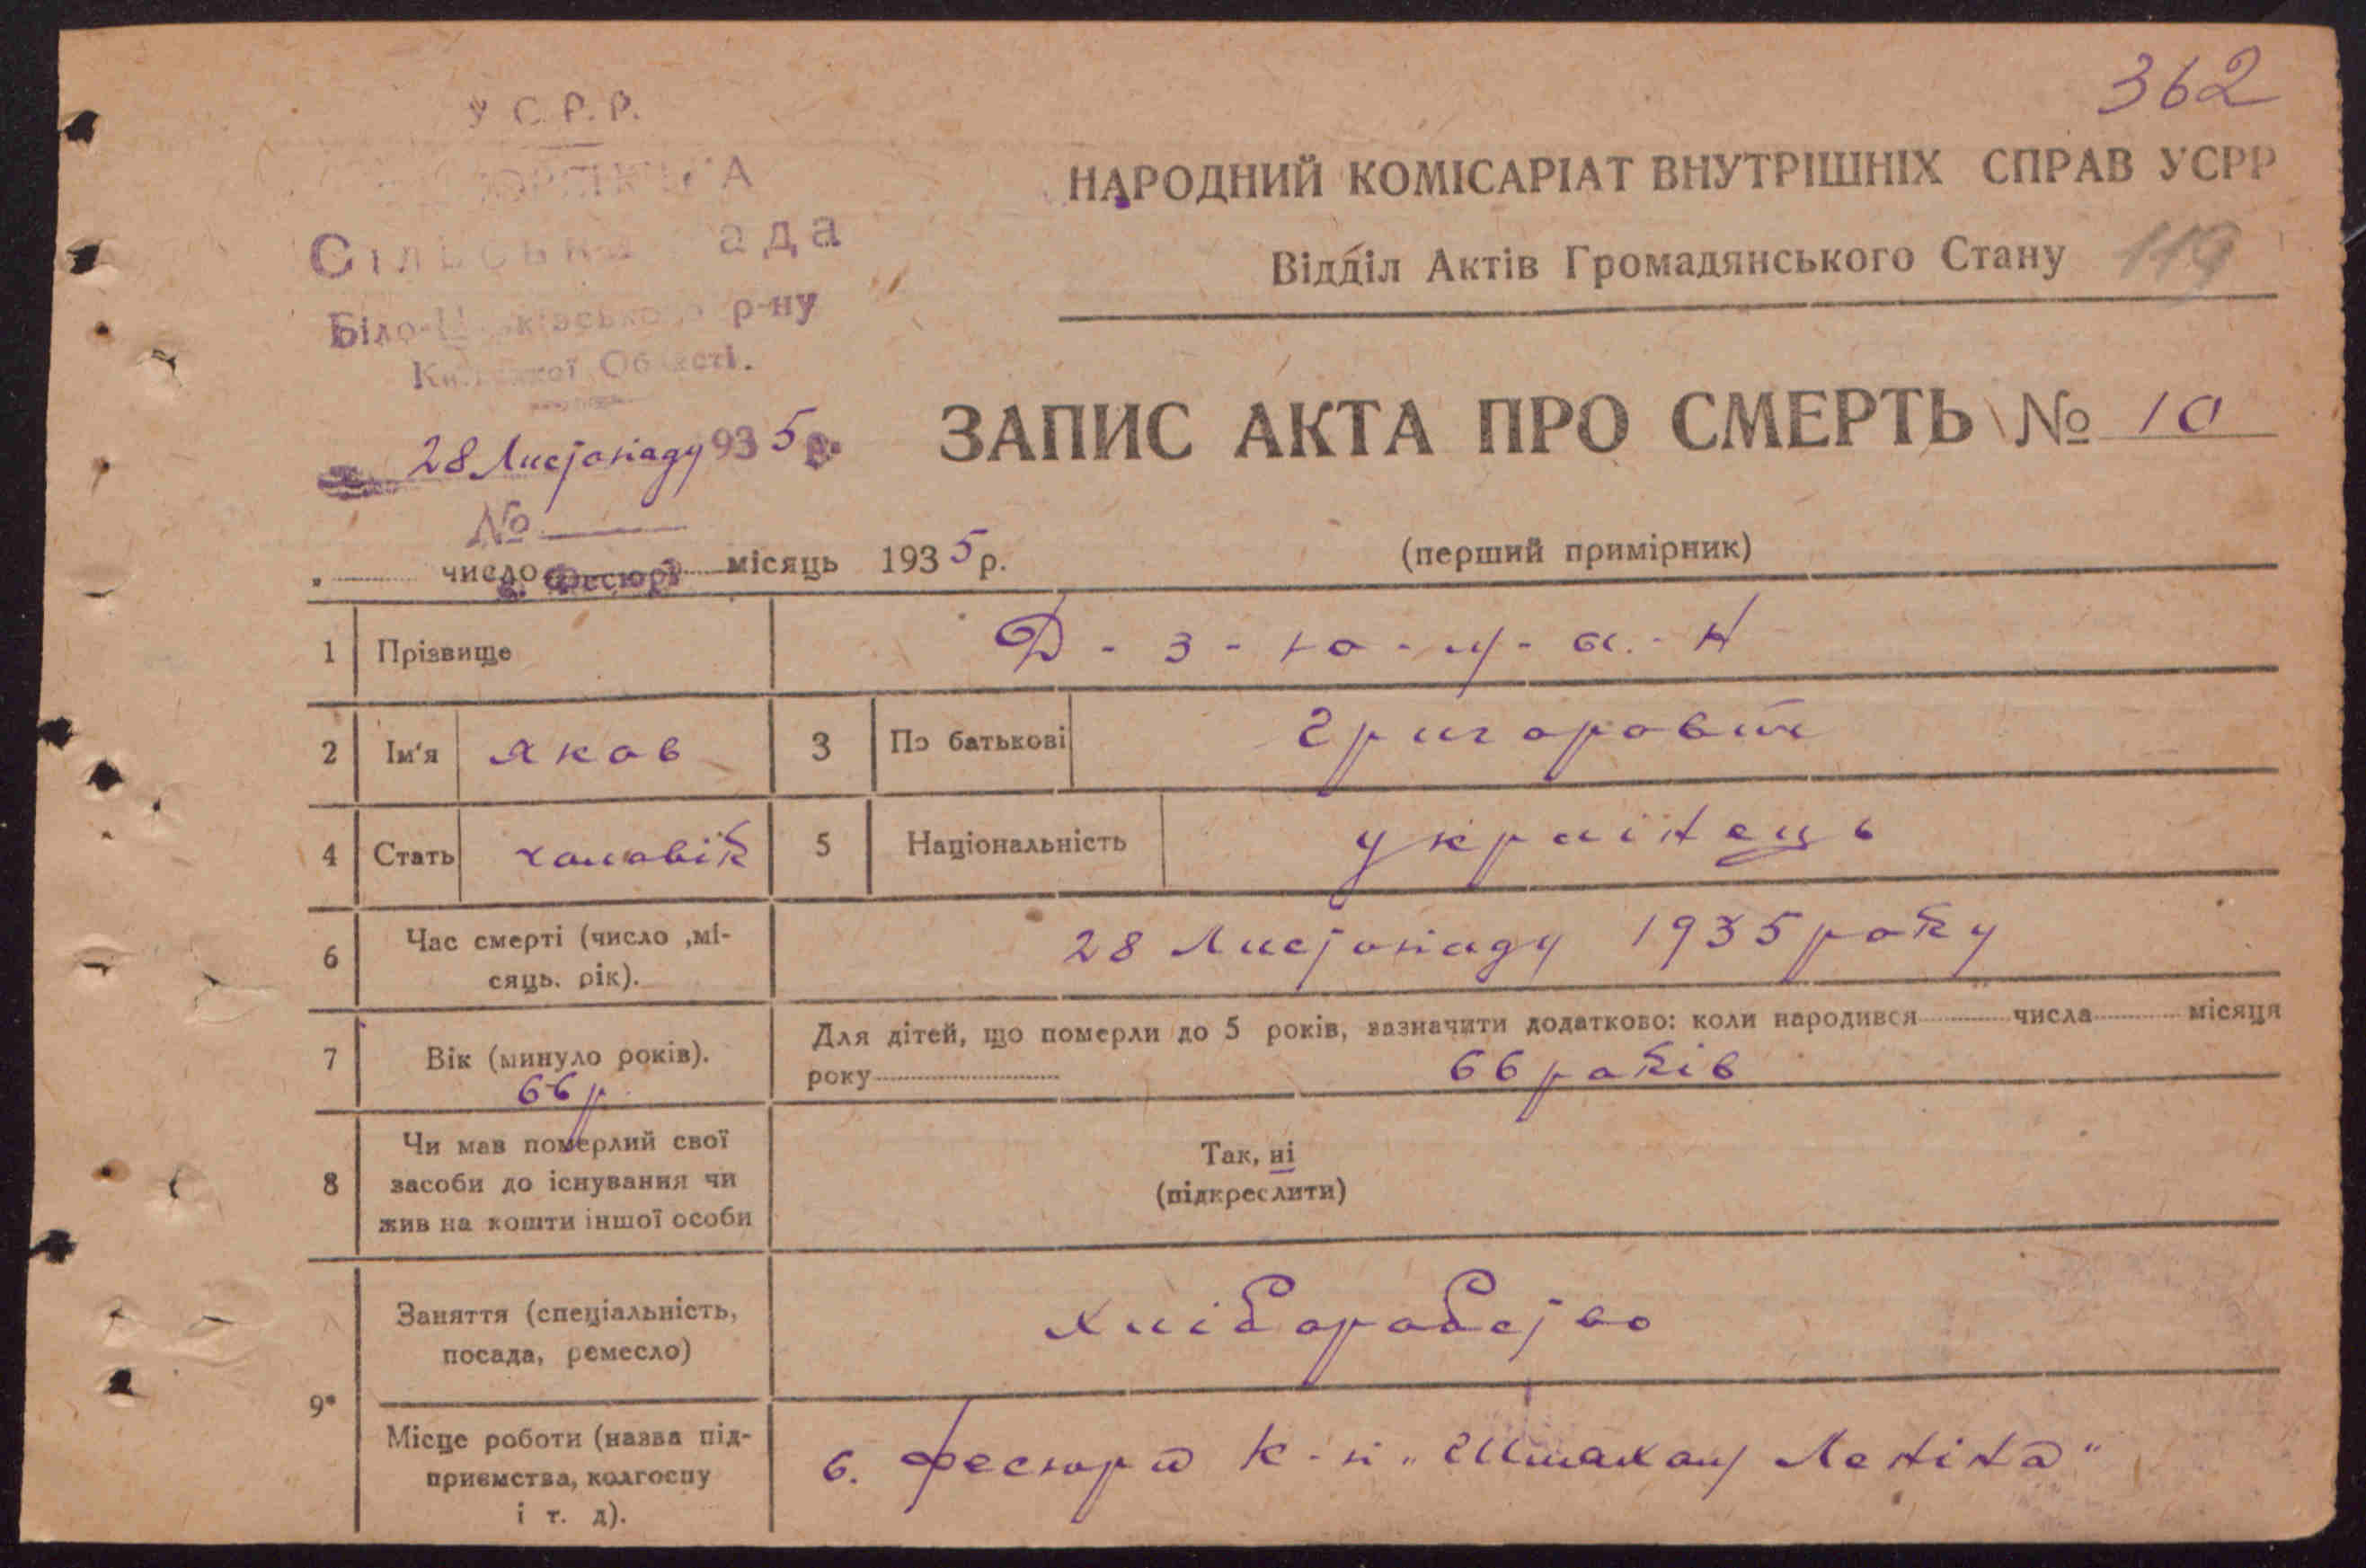 362
У С.Р.Р.
Сільська рада
Біло-Церківського р-ну
Київської Області.
28 Листопаду 935 р.
№
с. Фесюрі
НАРОДНИЙ КОМІСАРІАТ ВНУТРІШНІХ СПРАВ УСРР
Відділ Актів Громадянського Стану
119
ЗАПИС АКТА ПРО СМЕРТЬ № 10
" число місяць 1935 р.
(перший примірник)
1 Прізвище Д-з-ю-ц-а-н
2 Ім'я Яков 3 По батькові Григоровіч
4 Стать чоловік 5 Національність українець
6 Час смерті (число ,мі-
сяць. рік).
28 Листопаду 1935 року
7 Вік (минуло років).
66 р.
Для дітей, що померли до 5 років, зазначити додатково: коли народився числа місяця
року 66 років
8 Чи мав померлий свої
засоби до існування чи
жив на кошти іншої особи
Так, ні
(підкреслити)
9* Заняття (спеціальність,
посада, ремесло)
хліборобство
Місце роботи (назва під-
приємства, колгоспу
і т. д).
в. Фесюри к-п „Шляхом Леніна"